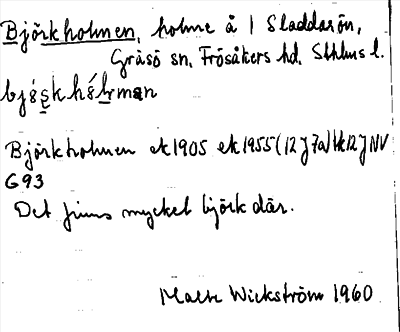 Björkholmen, holme å 1 Sladdarön,
Gräsö sn, Frösåkers hd, Sthlms l.
Björkholmen ek1905 ek1955 (12J7a) tk12JNV
G93
Det finns mycket björk där.
Malte Wickström 1960